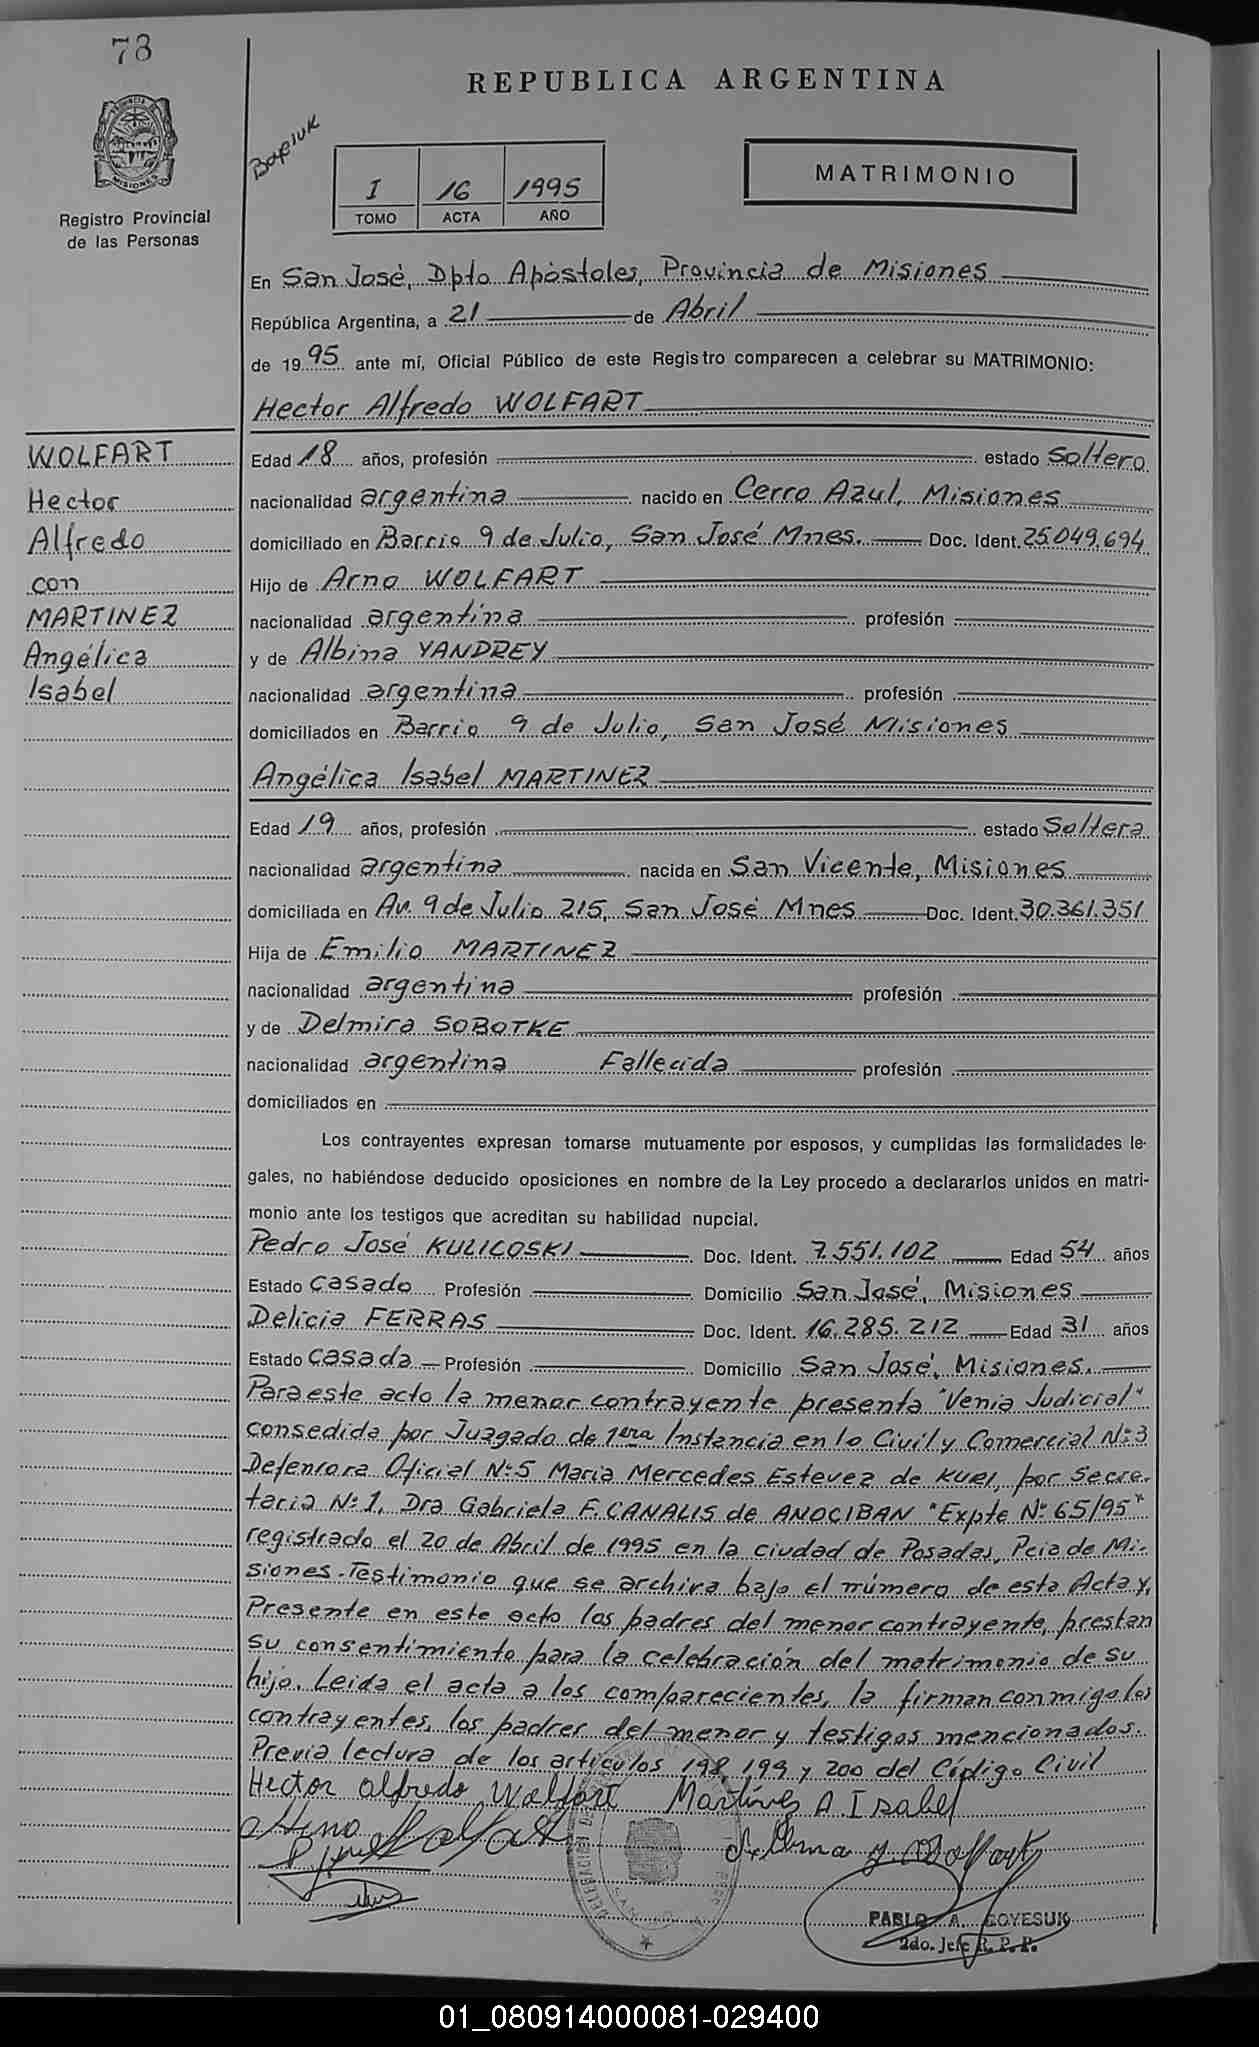 73
REPUBLICA ARGENTINA
PROVINCIA DE
MISIONES
Registro Provincial
de las Personas
I 16 1995
TOMO ACTA AÑO
MATRIMONIO
En San José, Dpto Apóstoles, Provincia de Misiones
República Argentina, a 21 de Abril
de 1995 ante mí, Oficial Público de este Registro comparecen a celebrar su MATRIMONIO:
Hector Alfredo WOLFART
WOLFART
Hector
Alfredo
con
MARTINEZ
Angélica
Isabel
Edad 18 años, profesión estado Soltero
nacionalidad argentina nacido en Cerro Azul, Misiones
domiciliado en Barrio 9 de Julio, San José Mnes. Doc. Ident. 25.049.694
Hijo de Arno WOLFART
nacionalidad argentina profesión
y de Albina YANDREY
nacionalidad argentina profesión
domiciliados en Barrio 9 de Julio, San José Misiones
Angélica Isabel MARTINEZ
Edad 19 años, profesión estado Soltera
nacionalidad argentina nacida en San Vicente, Misiones
domiciliada en Av. 9 de Julio 215, San José Mnes Doc. Ident. 30.361.351
Hija de Emilio MARTINEZ
nacionalidad argentina profesión
y de Delmira SOBOTKE
nacionalidad argentina Fallecida profesión
domiciliados en
Los contrayentes expresan tomarse mutuamente por esposos, y cumplidas las formalidades le-
gales, no habiéndose deducido oposiciones en nombre de la Ley procedo a declararlos unidos en matri-
monio ante los testigos que acreditan su habilidad nupcial.
Pedro José KULICOSKI Doc. Ident. 7.551.102 Edad 54 años
Estado casado Profesión Domicilio San José, Misiones
Delicia FERRAS Doc. Ident. 16.285.212 Edad 31 años
Estado casada Profesión Domicilio San José, Misiones.
Para este acto la menor contrayente presenta "Venia Judicial"
consedida por Juzgado de 1era Instancia en lo Civil y Comercial Nº 3
Defensora Oficial Nº 5 Maria Mercedes Estevez de KURI, por Secre-
taria Nº 1, Dra Gabriela F. CANALIS de ANOCIBAN "Expte Nº 65/95"
registrado el 20 de Abril de 1995 en la ciudad de Posadas, Pcia de Mi-
siones. Testimonio que se archiva bajo el número de esta Acta y,
Presente en este acto los padres del menor contrayente, prestan
su consentimiento para la celebración del matrimonio de su
hijo. Leida el acta a los comparecientes, la firman conmigo los
contrayentes, los padres del menor y testigos mencionados.
Previa lectura de los artículos 198, 199 y 200 del Código Civil
Hector Alfredo Wolfart Martínes A Isabel
PABLO A. BOYESUK
2do. Jefe R. P. P.
01_080914000081-029400